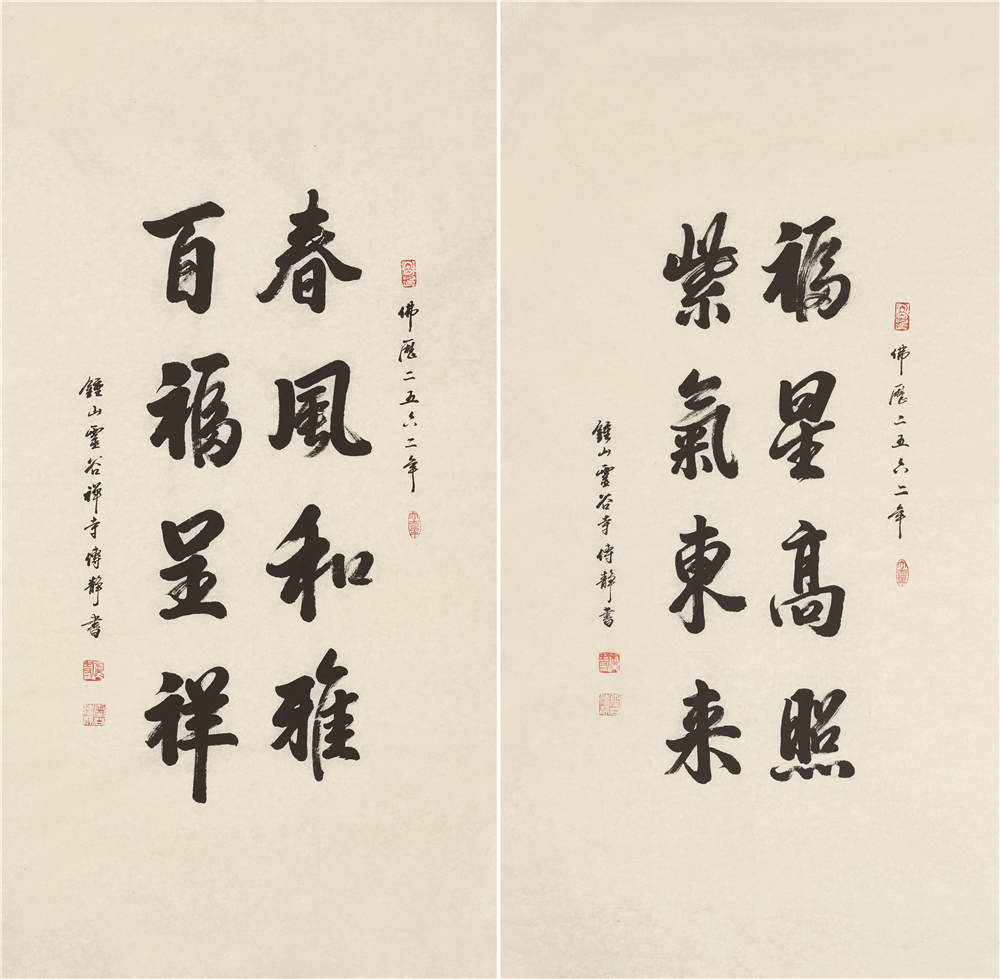 佛歷二五六二年
福星高照
紫氣東来
鍾山靈谷寺傳静書
佛歷二五六二年
春風和雅
百福呈祥
鍾山靈谷禅寺傳静書